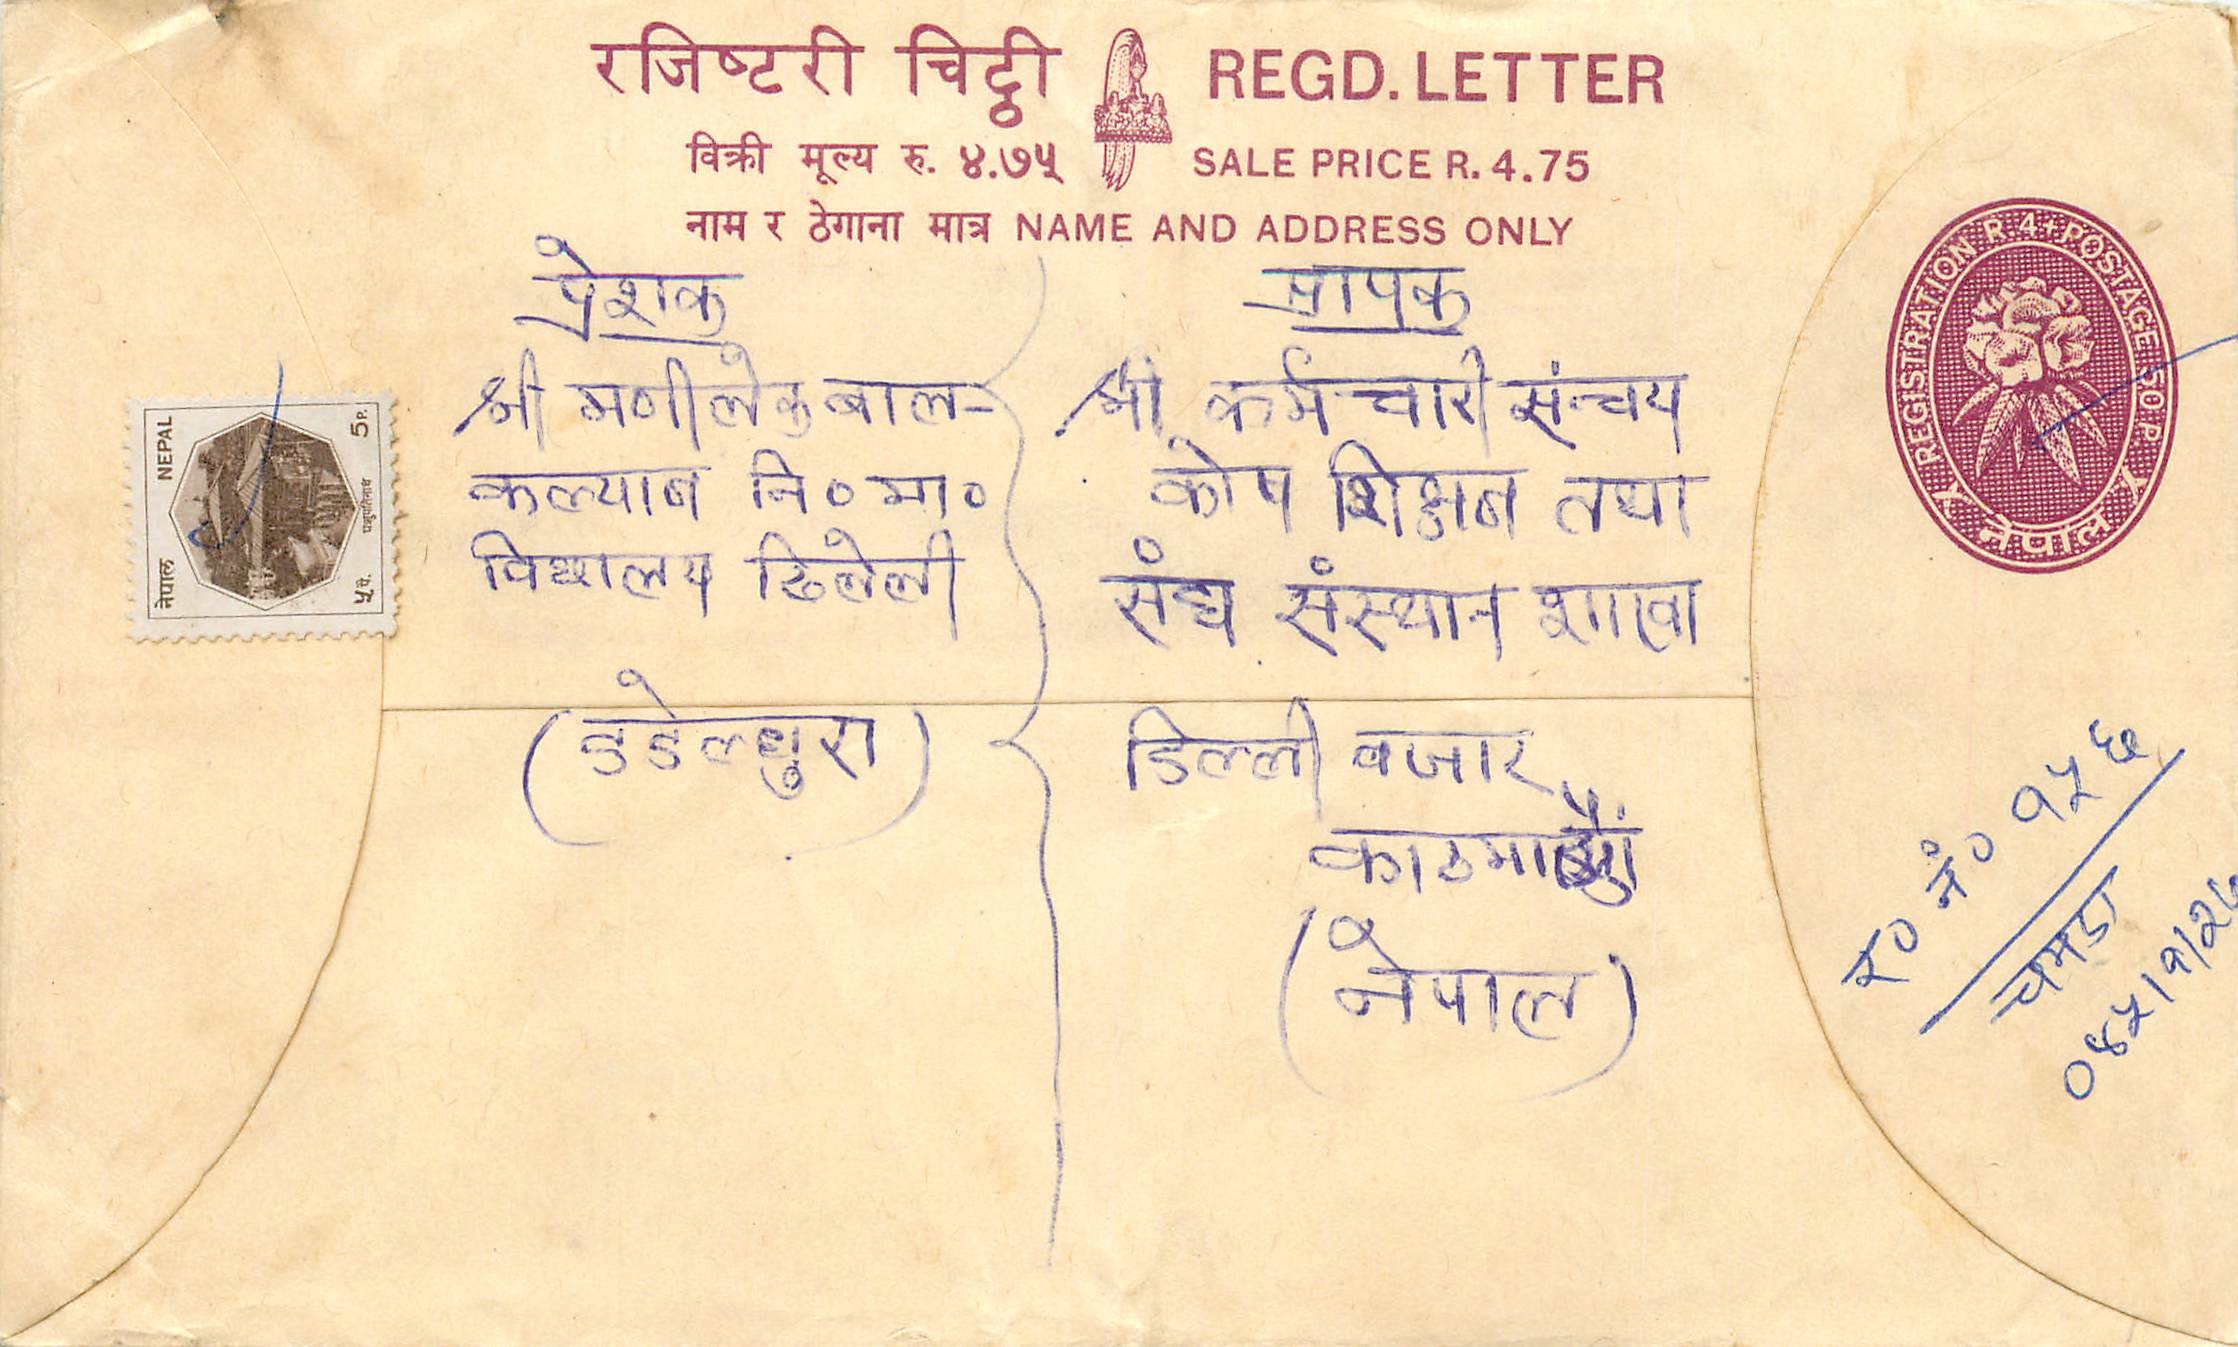 रजिष्टरी चिट्ठी REGD. LETTER
विक्री मूल्य रु. ४.७५ SALE PRICE R. 4.75
नाम र ठेगाना मात्र NAME AND ADDRESS ONLY
REGISTRATION R 4+POSTAGE 50 P.
नेपाल
नेपाल NEPAL
५ पै. 5 P.
पशुपतिनाथ
प्रेशक
श्री मणीलेक बाल-
कल्यान नि० मा०
विद्यालय
(डडेल्धुरा)
प्रापक
श्री कर्मचारी संन्चय
कोष शिक्षन तथा
संघ संस्थान शाखा
डिल्ली बजार
काठमाडौं
(नेपाल)
र० नं० १५६
चमडा
०४५।१।२७